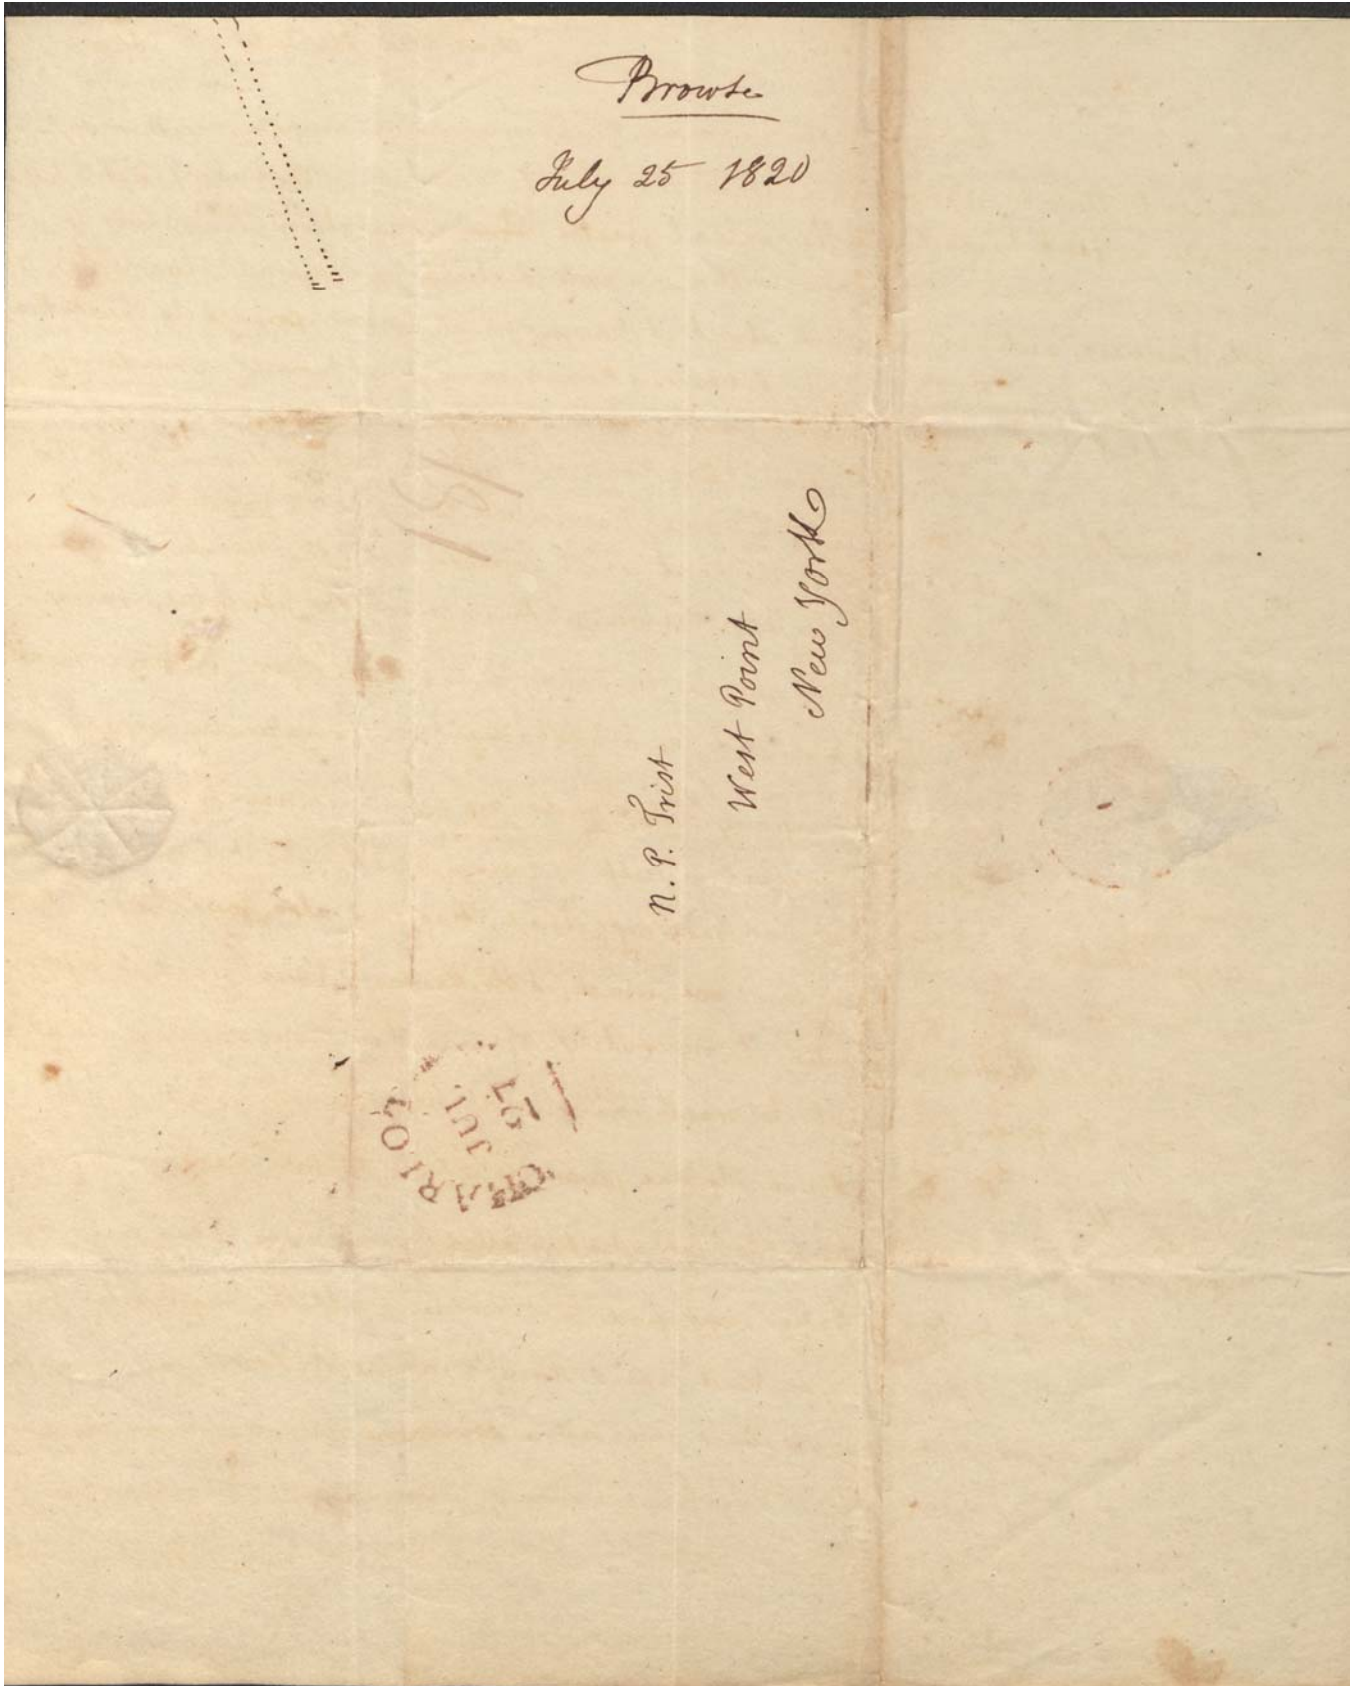 Browse
July 25 1820
N. P. Trist
West Point
New York
JUL
27